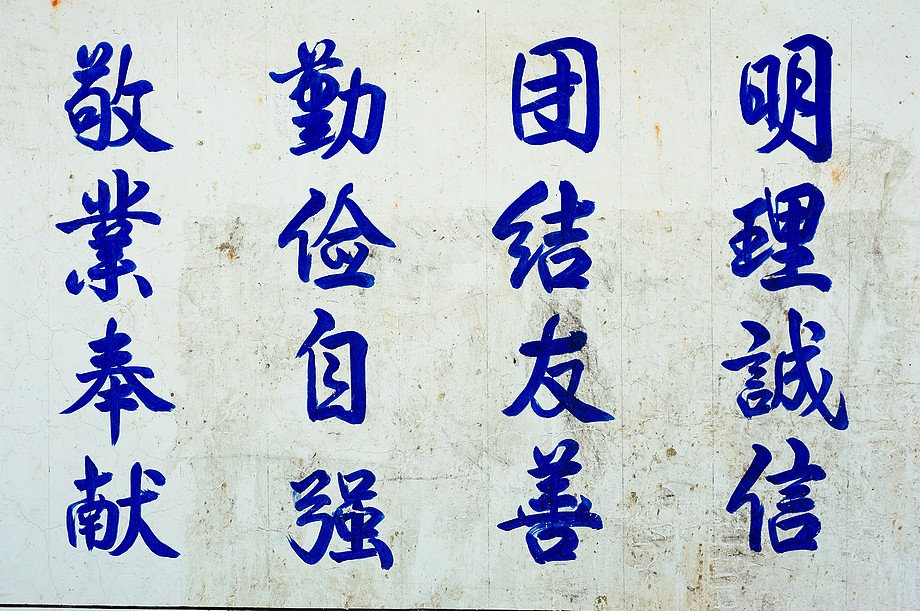 明理誠信
团结友善
勤俭自强
敬業奉献